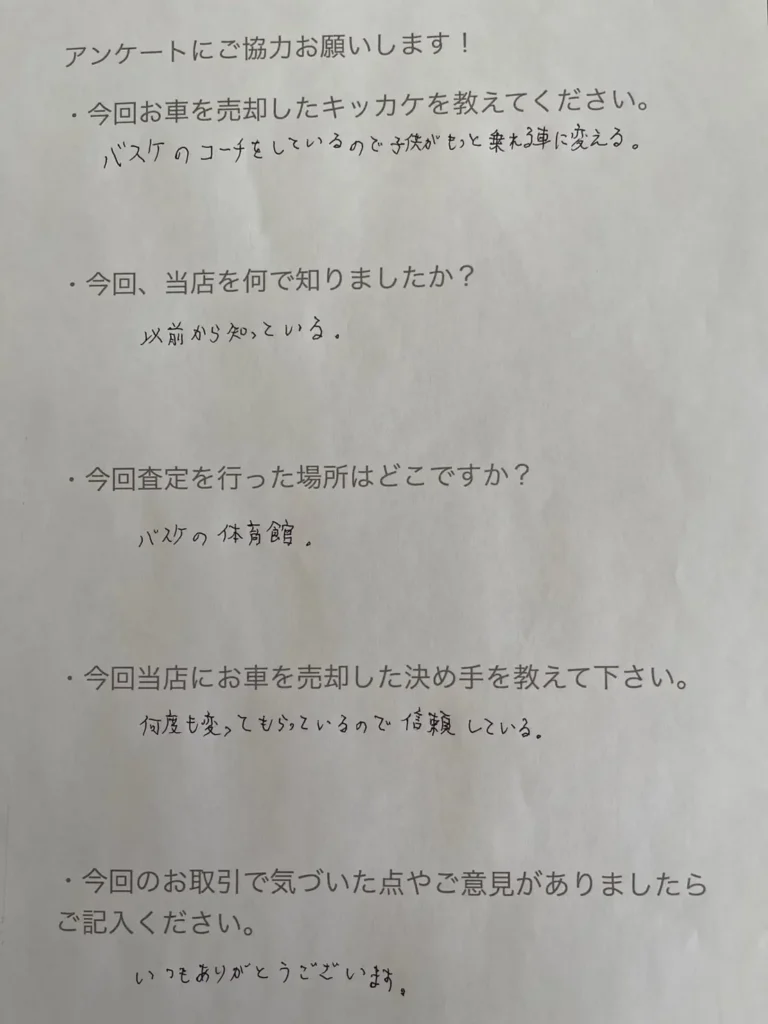 アンケートにご協力お願いします！
・今回お車を売却したキッカケを教えてください。
バスケのコーチをしているので子供がもっと乗れる車に変える。
・今回、当店を何で知りましたか？
以前から知っている.
・今回査定を行った場所はどこですか？
バスケの体育館.
・今回当店にお車を売却した決め手を教えて下さい。
何度も変ってもらっているので信頼している.
・今回のお取引で気づいた点やご意見がありましたら
ご記入ください。
いつもありがとうございます。